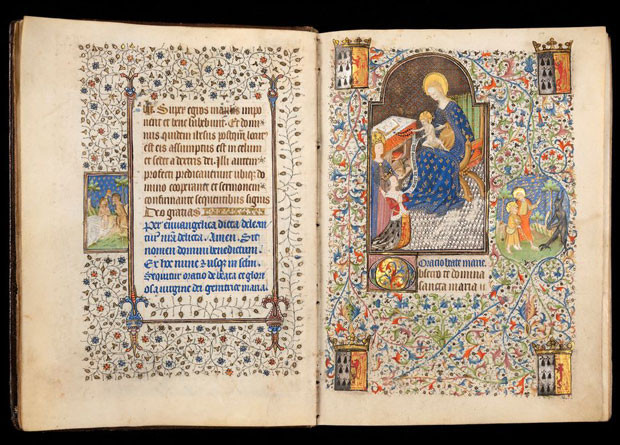 Super egros manus impo
nent et bene habebunt. Et domi
nus quidem ihesus postquam
est eis assumptus est in celum
et sedet a dextris dei. Illi autem
profecti predicauerunt ubique do
mino cooperante et sermonem
confirmante sequentibus signis
Deo gratias
Per euuangelica dicta delean
tur nostra delicta. Amen. Sit
nomen domini benedictum
Ex hoc nunc et usque in
Sequitur oratio de beata et glorio
sa uirgine dei genitrice maria
Oratio beate marie
Obsecro te domina
sancta maria